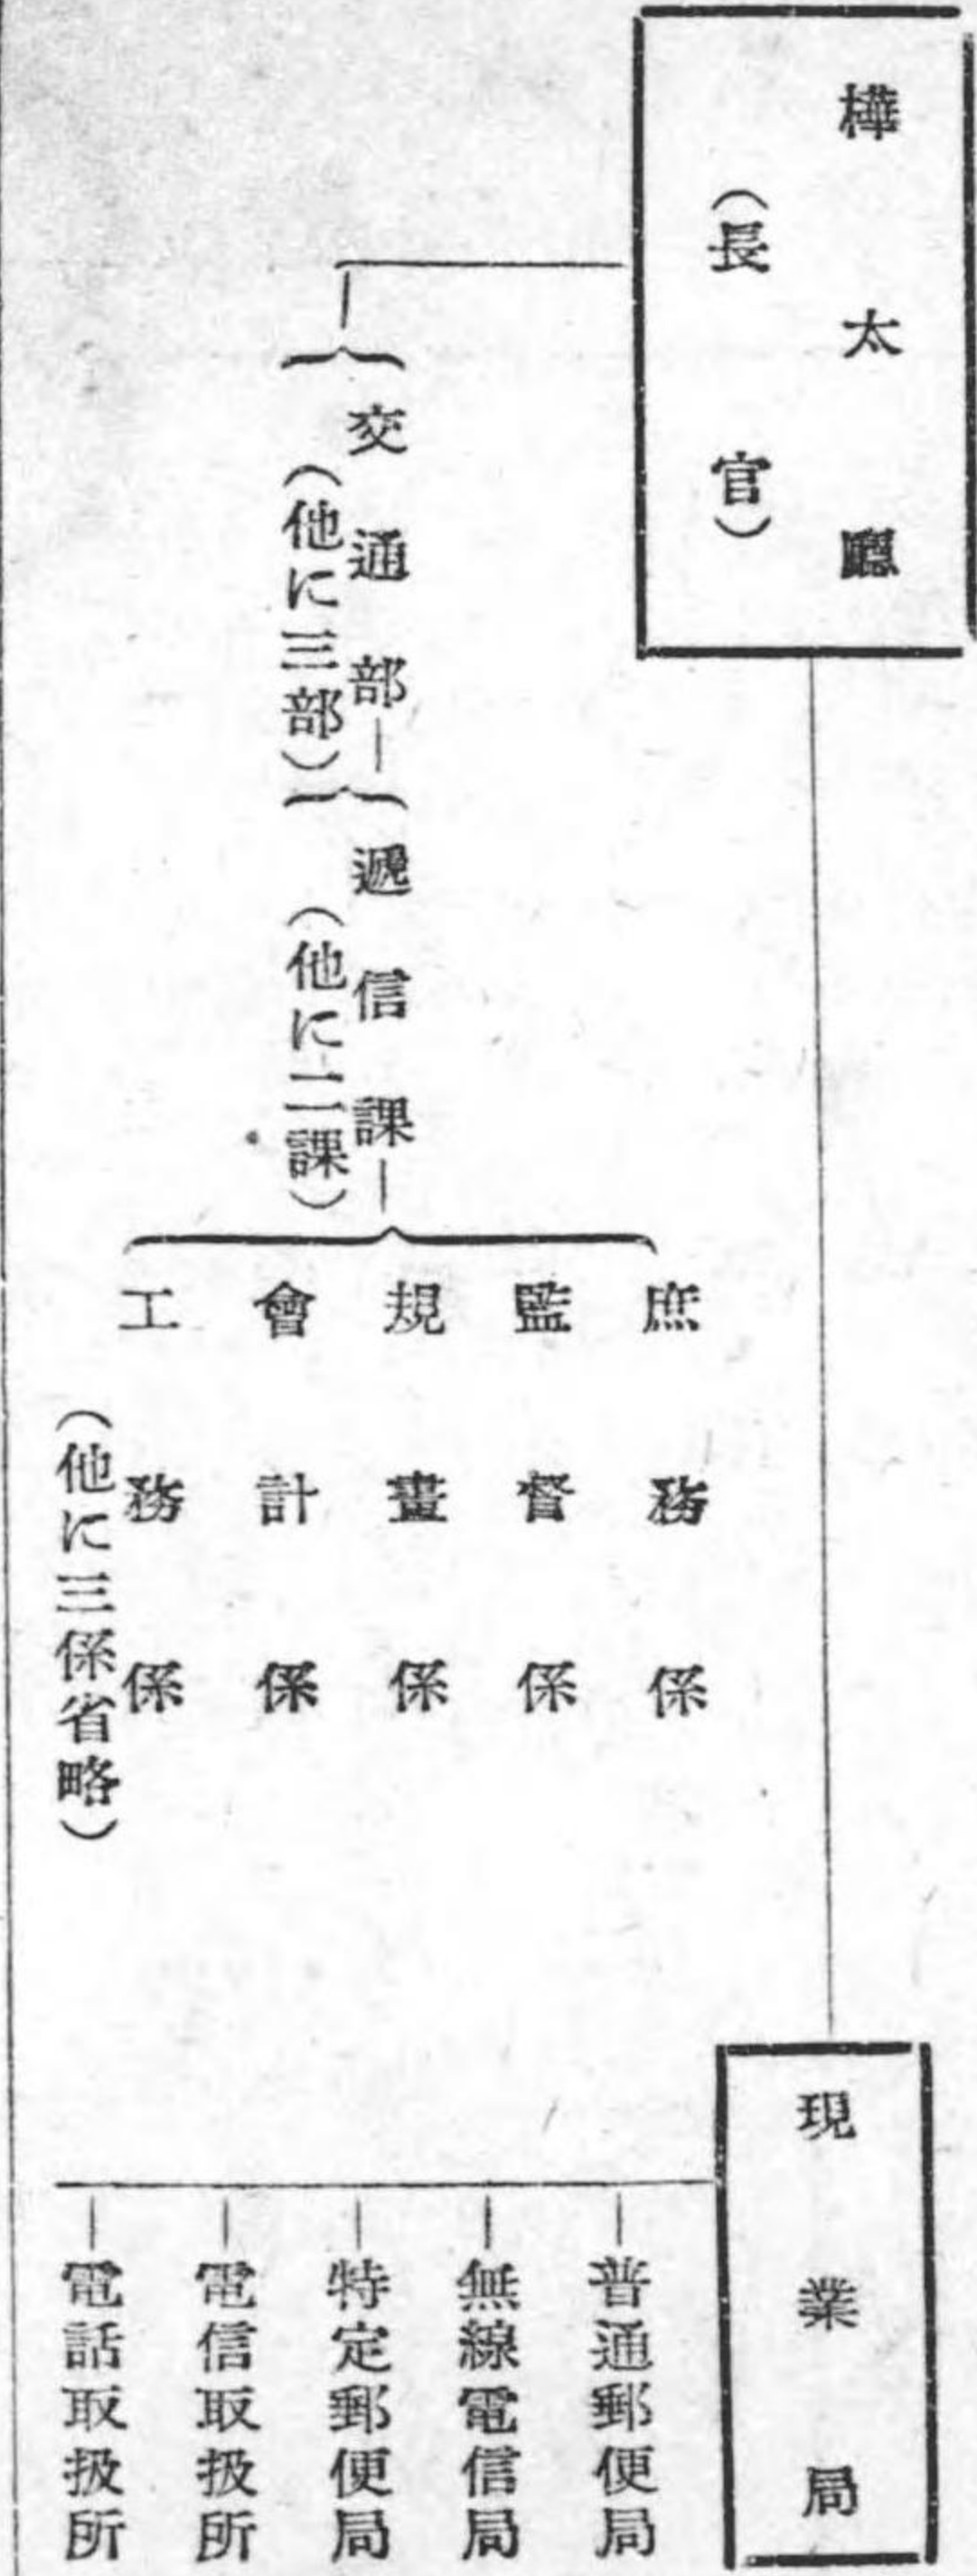 樺太廳
(長官)
交通部
(他に三部)
遞信課
(他に二課)
庶務係
監督係
規畫係
會計係
工務係
(他に三係省略)
現業局
普通郵便局
無線電信局
特定郵便局
電信取扱所
電話取扱所